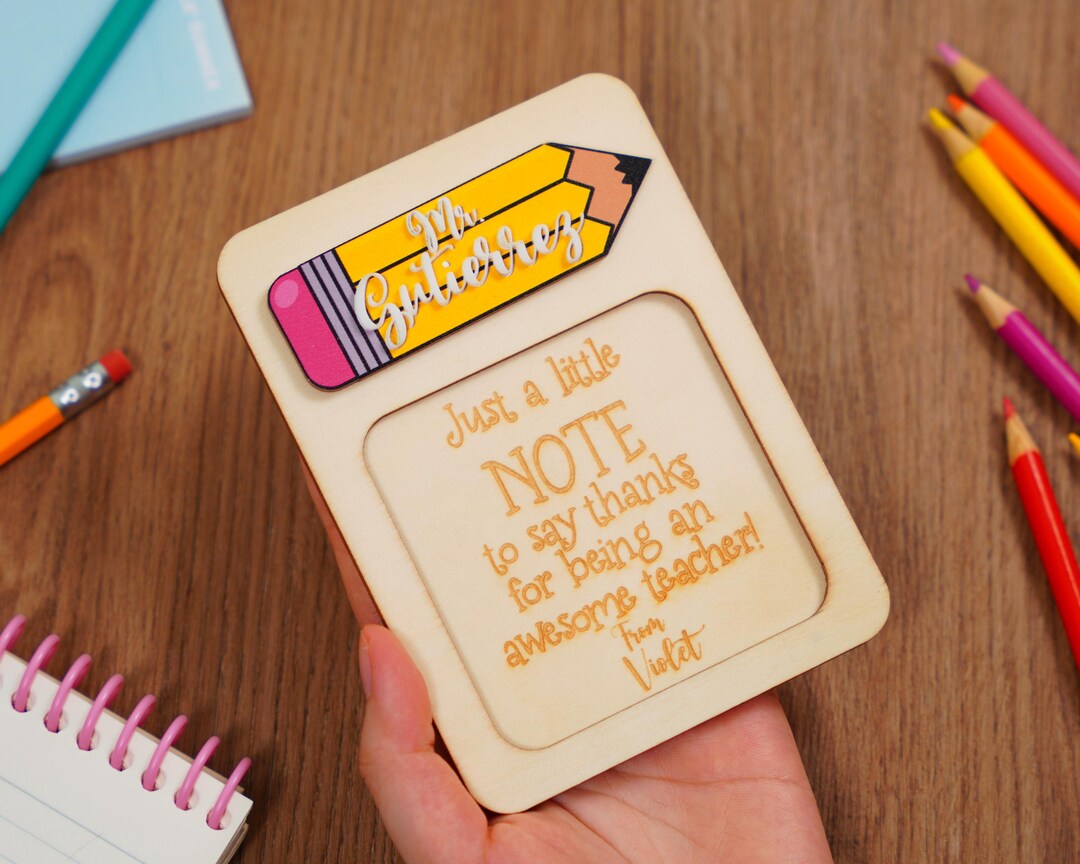 Mr.
Gutierrez
Just a little
NOTE
to say thanks
for being an
awesome teacher!
From
Violet